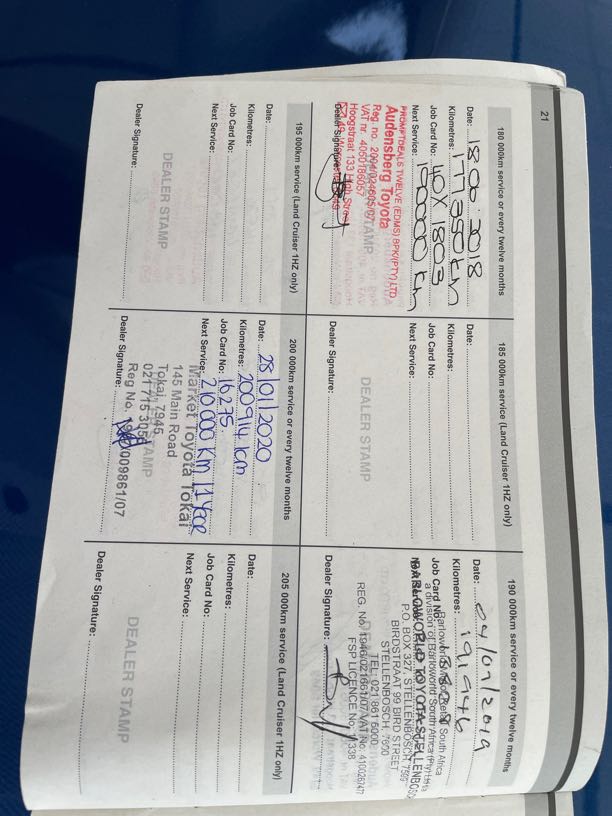 21
180 000km service or every twelve months
Date: 18.06.2018
Kilometres: 177 350 km
Job Card No: 40X1803
Next Service: 190000 km
PROMPT DEALS TWELVE (EDMS) BPK/(PTY) LTD
Audensberg Toyota
Reg. no. 2004/024605/07
VAT nr. 4050186057
Hoogstraat 133 High Street
DEALER STAMP
Dealer Signature:
185 000km service (Land Cruiser 1HZ only)
Date:
Kilometres:
Job Card No:
Next Service:
DEALER STAMP
Dealer Signature:
190 000km service or every twelve months
Date: 04/07/2019
Kilometres: 191946
Job Card No:
Barloworld South Africa
a division of Barloworld South Africa (Pty) Ltd
BARLOWORLD TOYOTA STELLENBOSCH
P.O. BOX 327, STELLENBOSCH, 7599
BIRDSTRAAT 99 BIRD STREET
STELLENBOSCH, 7600
TEL: 021 861 5000
REG. No. 1946/021661/07/VAT No:
FSP LICENCE No:
Dealer Signature:
195 000km service (Land Cruiser 1HZ only)
Date:
Kilometres:
Job Card No:
Next Service:
DEALER STAMP
Dealer Signature:
200 000km service or every twelve months
Date: 28/01/2020
Kilometres: 200914 km
Job Card No: 16275
Next Service: 210 000 km / 1 year
Market Toyota Tokai
145 Main Road
Tokai, 7945
021 715 305
DEALER STAMP
Reg No. /009861/07
Dealer Signature:
205 000km service (Land Cruiser 1HZ only)
Date:
Kilometres:
Job Card No:
Next Service:
DEALER STAMP
Dealer Signature: